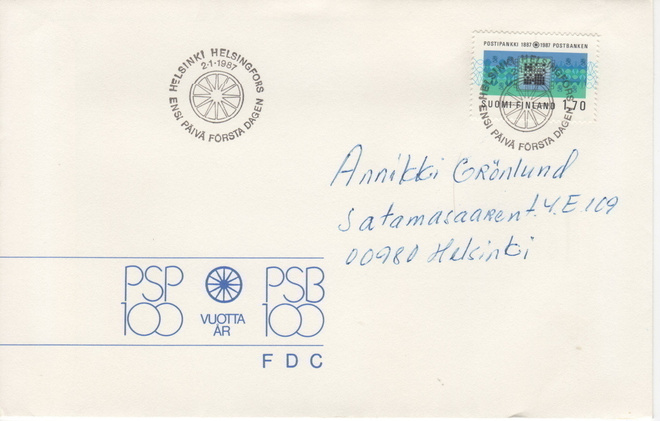 HELSINKI HELSINGFORS
2.1.1987
ENSI PÄIVÄ FÖRSTA DAGEN
POSTIPANKKI 1887 1987 POSTBANKEN
SUOMI FINLAND 1,70
HELSINKI HELSINGFORS
ENSI PÄIVÄ FÖRSTA DAGEN
Annikki Grönlund
Satamasaarent. 4. E. 109
00980 Helsinki
PSP PSB
100 VUOTTA 100
ÅR
FDC